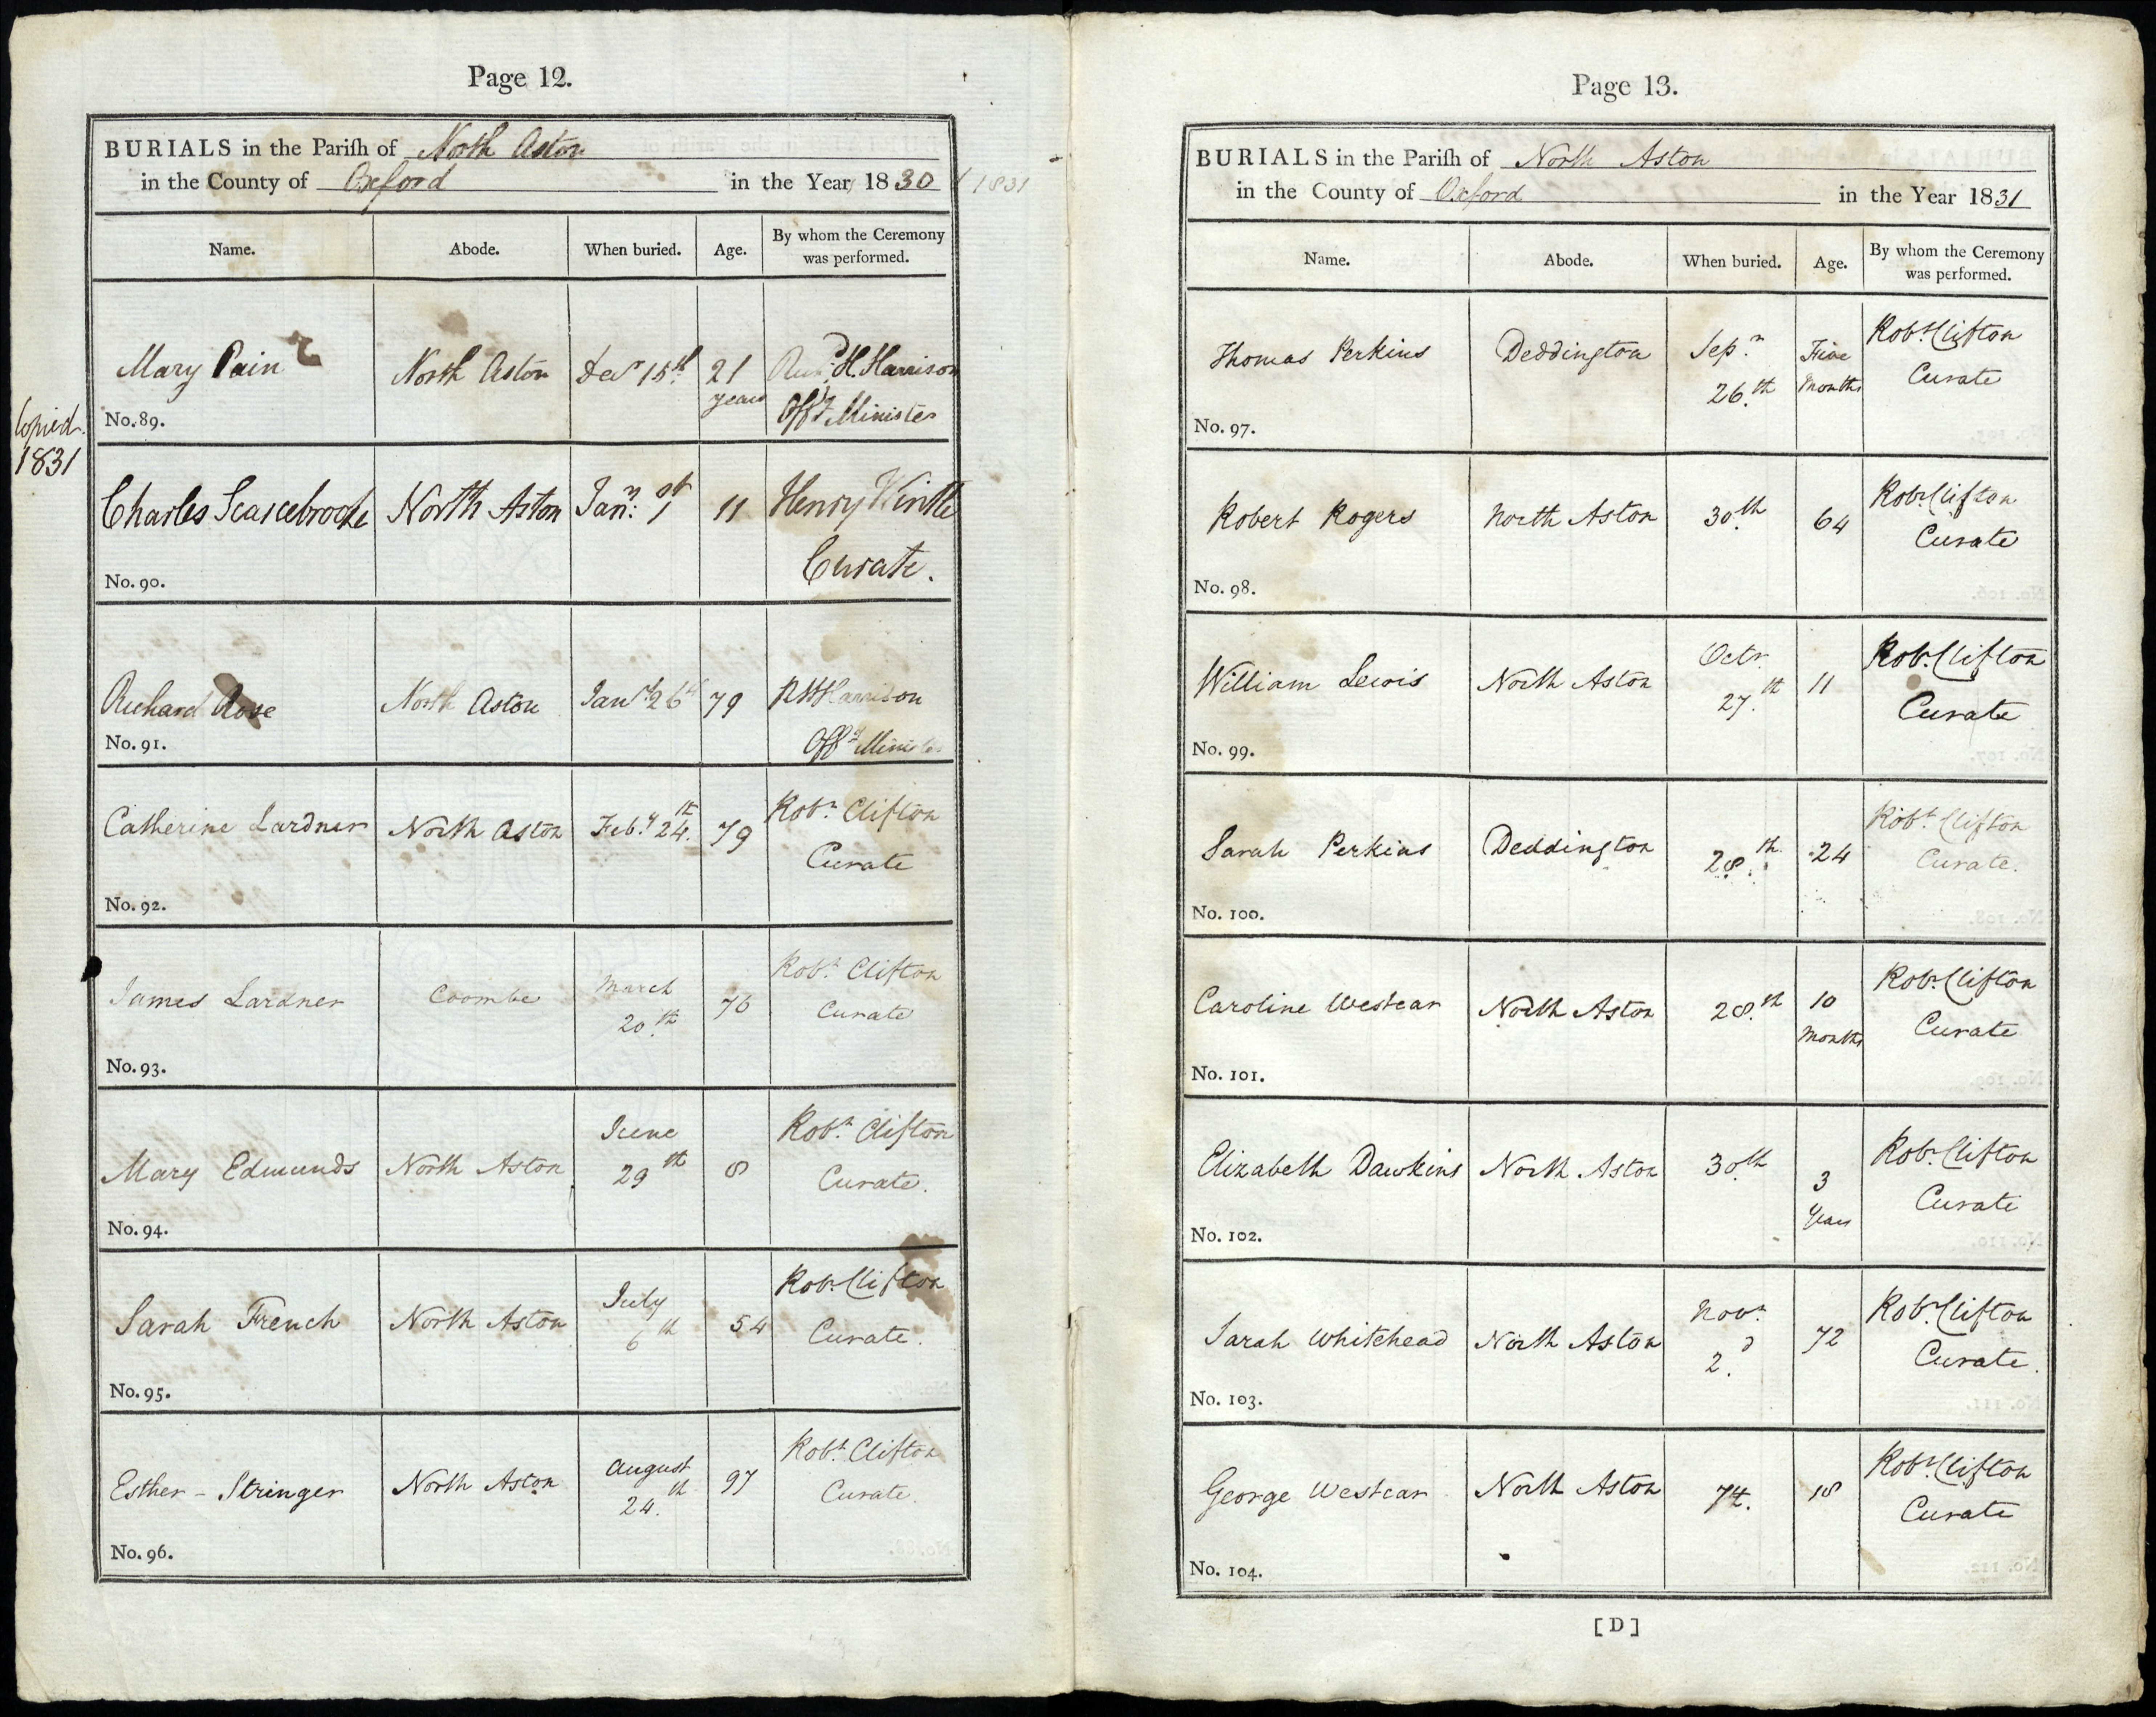 Page 12.
BURIALS in the Pariſh of North Aston
in the County of Oxford in the Year 1830 / 1831
Name. Abode. When buried. Age. By whom the Ceremony
was performed.
Mary Pain North Aston Decr 15th 21 years H. Harrison
Offg Minister
No. 89.
Copied
1831
Charles Scarcebrooke North Aston Jany 1st 11 Henry Wintle
Curate.
No. 90.
Richard Rose North Aston Jany 26th 79 RHHarrison
Offg Minister
No. 91.
Catherine Lardner North Aston Feby 24th 79 Robt Clifton
Curate
No. 92.
James Lardner Coombe March 20th 76 Robt Clifton
Curate
No. 93.
Mary Edmunds North Aston June 29th 8 Robt Clifton
Curate.
No. 94.
Sarah French North Aston July 6th 54 Robt Clifton
Curate.
No. 95.
Esther - Stringer North Aston August 24th 97 Robt Clifton
Curate.
No. 96.
Page 13.
BURIALS in the Pariſh of North Aston
in the County of Oxford in the Year 1831
Name. Abode. When buried. Age. By whom the Ceremony
was performed.
Thomas Perkins Deddington Sepr 26th Five Months Robt Clifton
Curate
No. 97.
Robert Rogers North Aston 30th 64 Robt Clifton
Curate
No. 98.
William Lewis North Aston Octr 27th 11 Robt Clifton
Curate
No. 99.
Sarah Perkins Deddington 28th 24 Robt Clifton
Curate.
No. 100.
Caroline Westcar North Aston 28th 10 Months Robt Clifton
Curate
No. 101.
Elizabeth Dawkins North Aston 30th 3 Years Robt Clifton
Curate
No. 102.
Sarah Whitehead North Aston Novr 2d 72 Robt Clifton
Curate.
No. 103.
George Westcar North Aston 7th 18 Robt Clifton
Curate
No. 104.
[D]